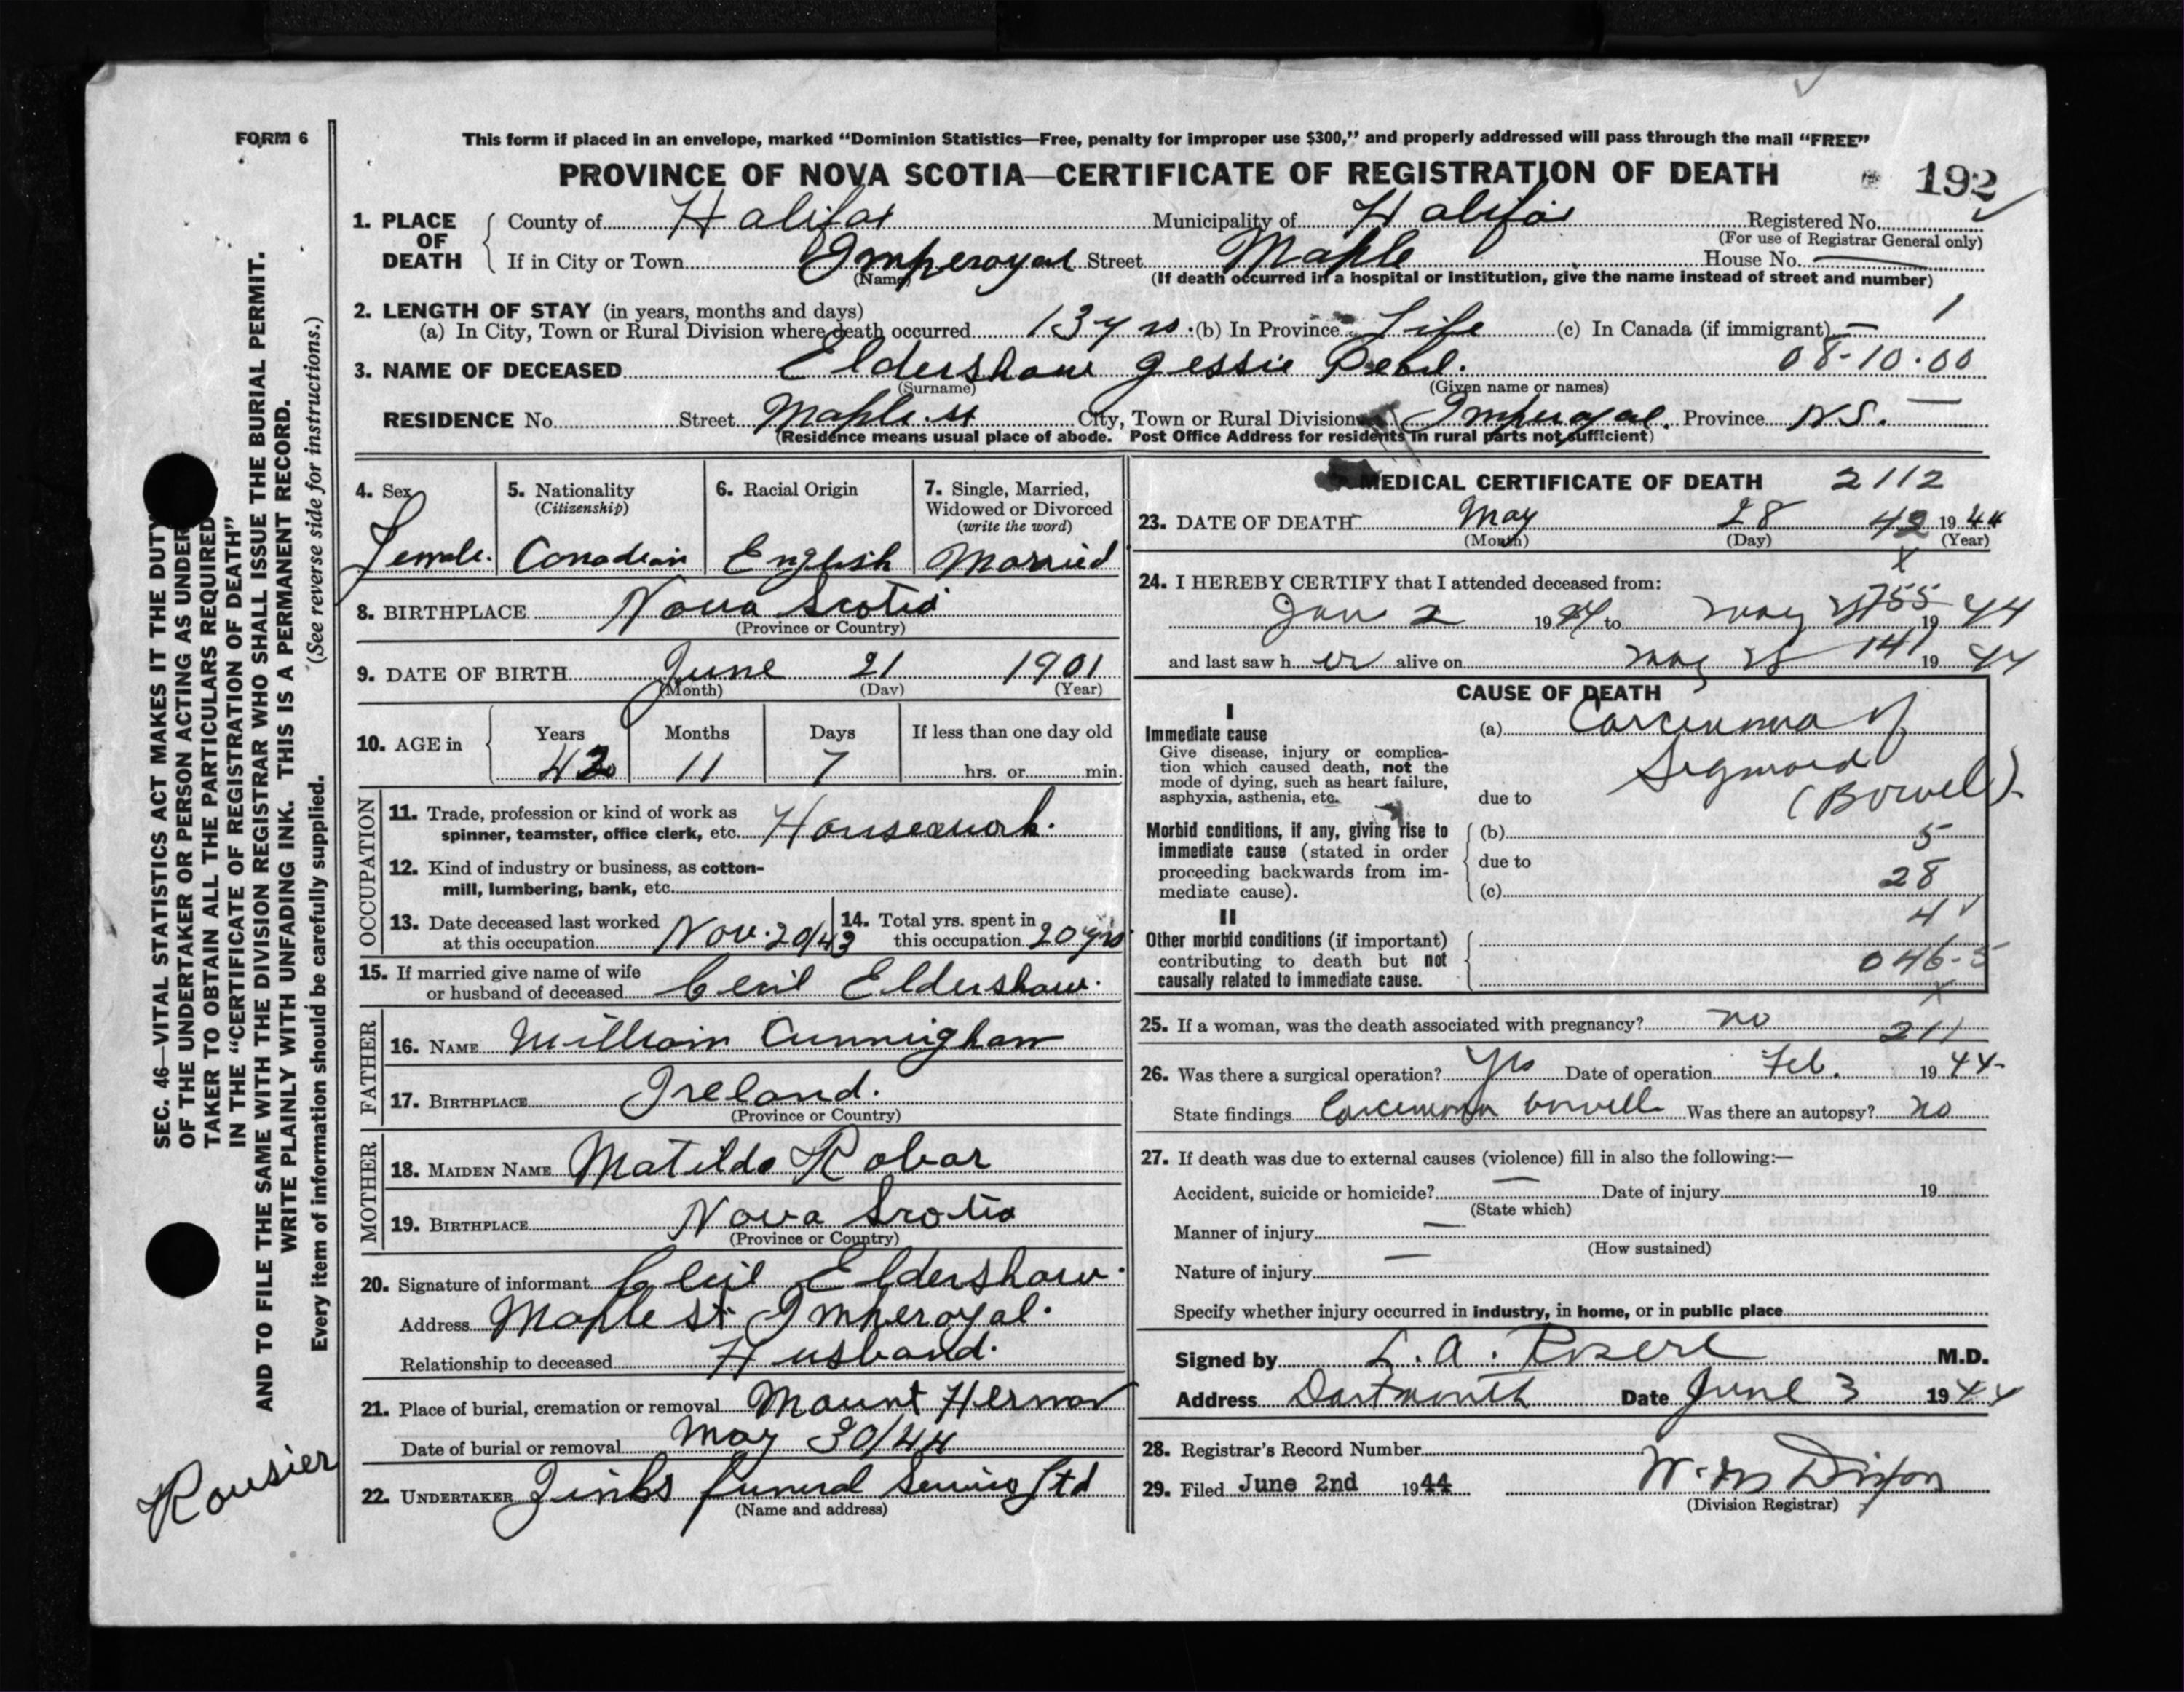 FORM 6
This form if placed in an envelope, marked "Dominion Statistics—Free, penalty for improper use $300," and properly addressed will pass through the mail "FREE"
PROVINCE OF NOVA SCOTIA—CERTIFICATE OF REGISTRATION OF DEATH 192
1. PLACE OF DEATH County of Halifax Municipality of Halifax Registered No.
(For use of Registrar General only)
If in City or Town Imperoyal Street Maple House No. —
(Name) (If death occurred in a hospital or institution, give the name instead of street and number)
2. LENGTH OF STAY (in years, months and days) 1
(a) In City, Town or Rural Division where death occurred 13 yrs. (b) In Province Life (c) In Canada (if immigrant) —
3. NAME OF DECEASED Eldershaw Jessie Pearl. 08-10.00
(Surname) (Given name or names)
RESIDENCE No. Street Maple st City, Town or Rural Division Imperoyal. Province N.S.
(Residence means usual place of abode. Post Office Address for residents in rural parts not sufficient)
4. Sex Female.
5. Nationality (Citizenship) Canadian
6. Racial Origin English
7. Single, Married, Widowed or Divorced (write the word) Married
8. BIRTHPLACE Nova Scotia
(Province or Country)
9. DATE OF BIRTH June 21 1901
(Month) (Day) (Year)
10. AGE in Years 42 Months 11 Days 7 If less than one day old hrs. or min.
OCCUPATION
11. Trade, profession or kind of work as
spinner, teamster, office clerk, etc. Housework.
12. Kind of industry or business, as cotton-
mill, lumbering, bank, etc.
13. Date deceased last worked at this occupation Nov. 20/43
14. Total yrs. spent in this occupation 20 yrs
15. If married give name of wife
or husband of deceased Cecil Eldershaw.
FATHER
16. NAME William Cunningham
17. BIRTHPLACE Ireland.
(Province or Country)
MOTHER
18. MAIDEN NAME Matilda Robar
19. BIRTHPLACE Nova Scotia
(Province or Country)
20. Signature of informant Cecil Eldershaw.
Address Maple st Imperoyal.
Relationship to deceased Husband.
21. Place of burial, cremation or removal Mount Hermon
Date of burial or removal May 30/44
22. UNDERTAKER Zinks funeral Service Ltd
(Name and address)
MEDICAL CERTIFICATE OF DEATH 2112
23. DATE OF DEATH May 28 42 1944
(Month) (Day) (Year)
X
24. I HEREBY CERTIFY that I attended deceased from:
Jan 2 1944 to May 28 755 1944
and last saw her alive on May 28 141 1944
CAUSE OF DEATH
I
Immediate cause
Give disease, injury or complica-
tion which caused death, not the
mode of dying, such as heart failure,
asphyxia, asthenia, etc.
(a) Carcinoma of
Sigmoid
due to (Bowel).
Morbid conditions, if any, giving rise to
immediate cause (stated in order
proceeding backwards from im-
mediate cause).
(b) 5
due to
(c) 28
II
4
Other morbid conditions (if important)
contributing to death but not
causally related to immediate cause.
046-5
X
25. If a woman, was the death associated with pregnancy? no
211
26. Was there a surgical operation? Yes Date of operation Feb. 1944
State findings Carcinoma bowell Was there an autopsy? no
27. If death was due to external causes (violence) fill in also the following:—
Accident, suicide or homicide? — Date of injury 19
(State which)
Manner of injury —
(How sustained)
Nature of injury —
Specify whether injury occurred in industry, in home, or in public place
Signed by M.D.
Address Dartmouth Date June 3 1944
28. Registrar's Record Number
29. Filed June 2nd 1944 W. M Dixon
(Division Registrar)
SEC. 46—VITAL STATISTICS ACT MAKES IT THE DUTY
OF THE UNDERTAKER OR PERSON ACTING AS UNDER
TAKER TO OBTAIN ALL THE PARTICULARS REQUIRED
IN THE "CERTIFICATE OF REGISTRATION OF DEATH"
AND TO FILE THE SAME WITH THE DIVISION REGISTRAR WHO SHALL ISSUE THE BURIAL PERMIT.
WRITE PLAINLY WITH UNFADING INK. THIS IS A PERMANENT RECORD.
Every item of information should be carefully supplied. (See reverse side for instructions.)
Rousier